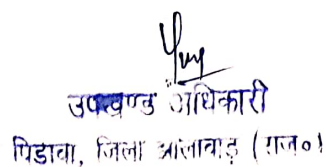 उपखण्ड अधिकारी
पिडावा, जिला झालावाड़ (राज०)